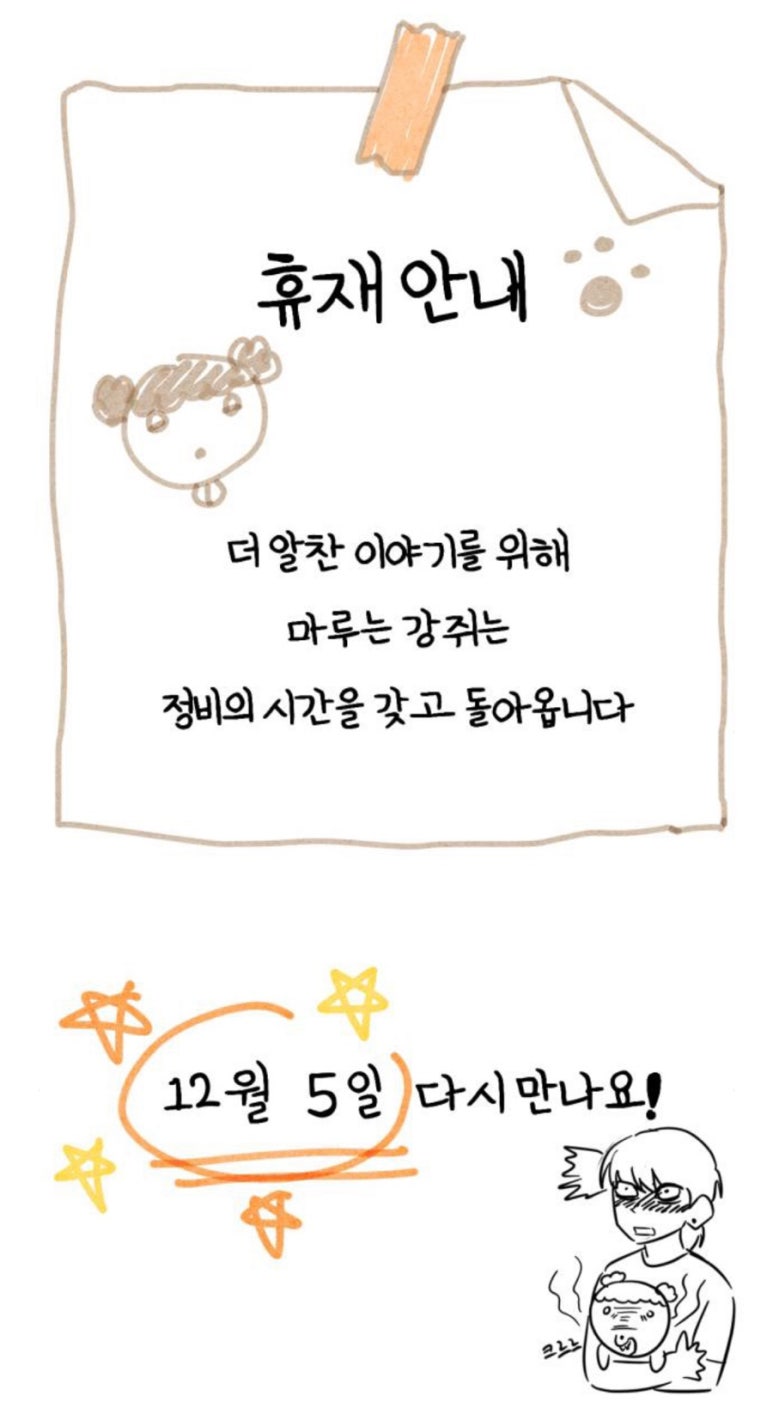 휴재 안내
더 알찬 이야기를 위해
마루는 강쥐는
정비의 시간을 갖고 돌아옵니다
12월 5일 다시 만나요!
크르르